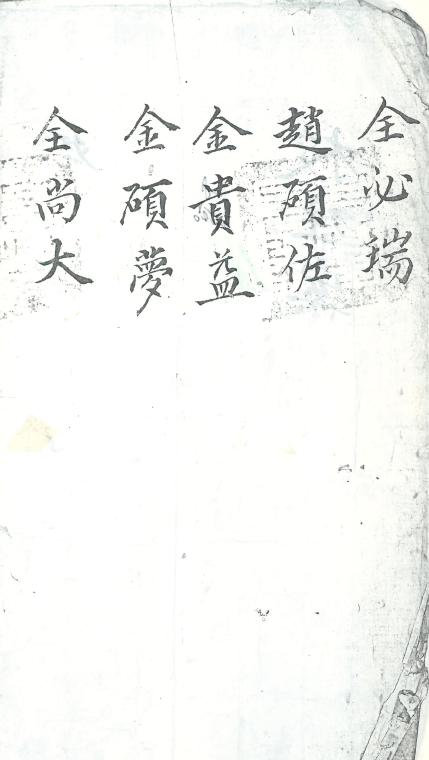 全必瑞
趙碩佐
金貴益
金碩夢
全尚大